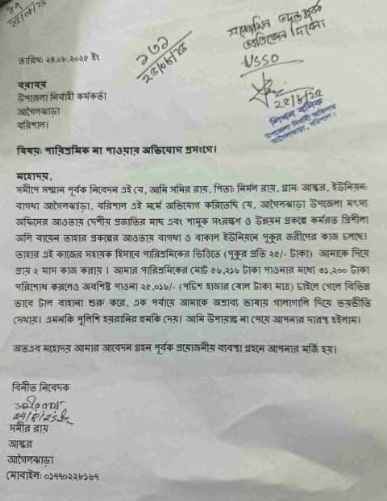 তারিখ: ২৪.০৮.২০২৫ ইং
১৩১
২৪/০৮/২৫
USSO
২৪/০৮/২৫
বরাবর
উপজেলা নির্বাহী কর্মকর্তা
আগৈলঝাড়া
বরিশাল।
বিষয়: পারিশ্রমিক না পাওয়ার অভিযোগ প্রসংগে।
মহোদয়,
সমীপে সম্মান পূর্বক নিবেদন এই যে, আমি সমির রায়, পিতা: নির্মল রায়, গ্রাম: আস্কর, ইউনিয়ন:
বাগধা আগৈলঝাড়া, বরিশাল এই মর্মে অভিযোগ করিতেছি যে, আগৈলঝাড়া উপজেলা মৎস্য
অফিসের আওতায় দেশীয় প্রজাতির মাছ এবং শামুক সংরক্ষণ ও উন্নয়ন প্রকল্পে কর্মরত প্রিন্সীলা
অলি বায়েন তাহার প্রকল্পের আওতায় বাগধা ও বাকাল ইউনিয়নে পুকুর জরীপের কাজ চলছে।
তাহার এই কাজের সহায়ক হিসাবে পারিশ্রমিকের ভিত্তিতে (পুকুর প্রতি ২৫/- টাকা) আমাকে দিয়ে
প্রায় ২ মাস কাজ করায়। আমার পারিশ্রমিকের মোট ৫৬,২১৬ টাকা পাওনার মধ্যে ৩১,২০০ টাকা
পরিশোধ করলেও অবশিষ্ট পাওনা ২৫,০১৬/- (পঁচিশ হাজার ষোল টাকা মাত্র) চাইলে গেলে বিভিন্ন
ভাবে টাল বাহানা শুরু করে, এক পর্যায়ে আমাকে অশ্রাব্য ভাষায় গালাগালি দিয়ে ভয়ভীতি
দেখায়। এমনকি পুলিশি হয়রানির হুমকি দেয়। আমি উপায়ান্ত না পেয়ে আপনার দারস্থ হইলাম।
অতএব মহোদয় আমার আবেদন গ্রহন পূর্বক প্রয়োজনীয় ব্যবস্থা গ্রহনে আপনার মর্জি হয়।
বিনীত নিবেদক
সমীর রায়
আস্কর
আগৈলঝাড়া
মোবাইল: ০১৭৭০২২৮১৬৭